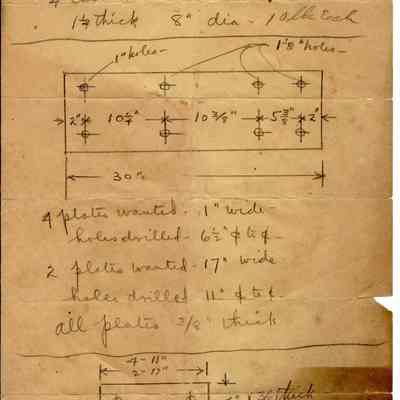 1¼ thick 8" dia - 1
1" holes - 1⅛" holes -
2" 10¼" 10 3/8" 5 3/8" 2"
30"
4 plates wanted - 1" wide -
holes drilled - 6½" ¢ to ¢ -
2 plates wanted - 17" wide
holes drilled 11" ¢ to ¢ -
all plates 3/8" thick
4 - 11"
2 - 17"
thick